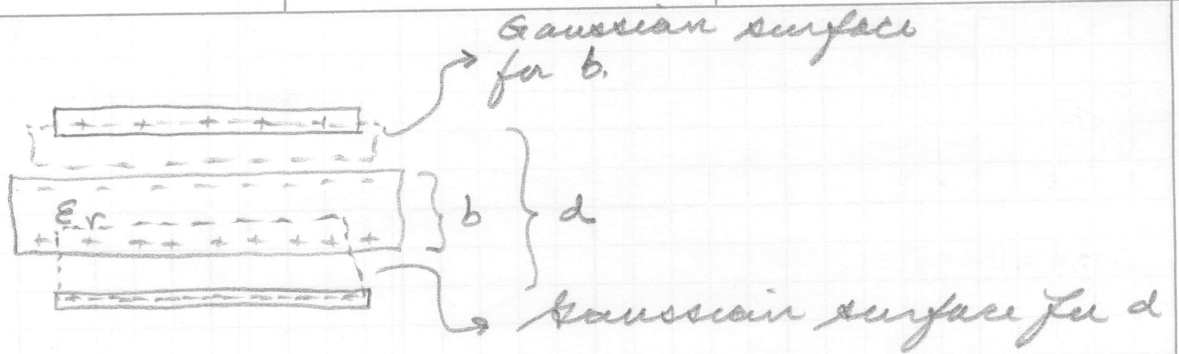 Gaussian surface
for b.
+ + + + +
εr
+ + + + + + + +
b
d
Gaussian surface for d